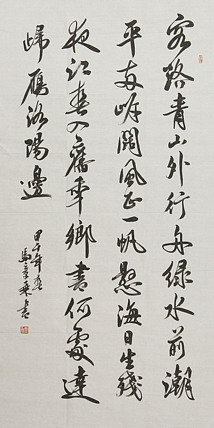 客路青山外行舟绿水前潮
平两岸阔风正一帆悬海日生残
夜江春入旧年乡书何处达
归雁洛阳边
甲午年春